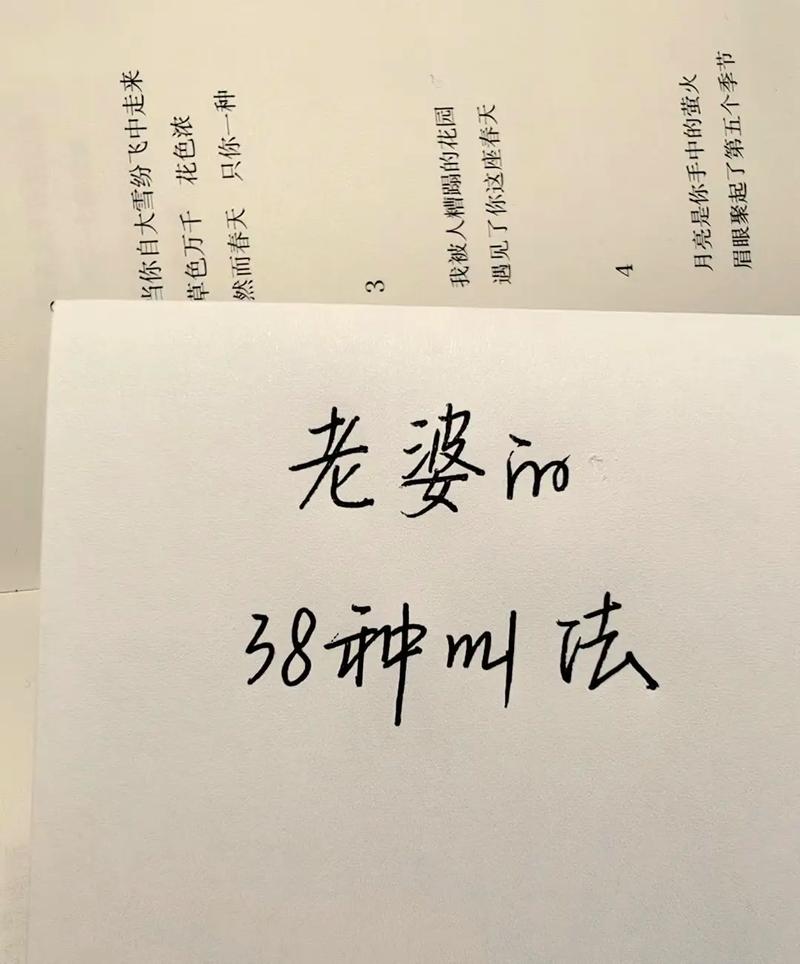 当你自大雪纷飞中走来
草色万千 花色浓
然而春天 只你一种
3
我被人糟蹋的花园
遇见了你这座春天
4
月亮是你手中的萤火
眉眼聚起了第五个季节
老婆的
38种叫法